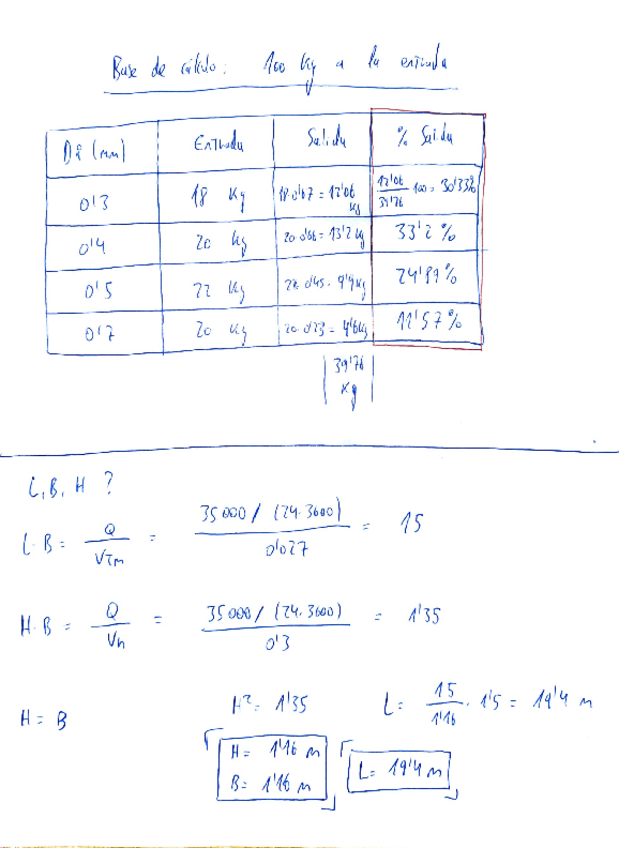 Base de cálculo: 100 Kg a la entrada
Dp (mm) Entrada Salida % Salida
0'3 18 Kg 18·0'67 = 12'06 Kg 12'06/39'76 · 100 = 30'33%
0'4 20 Kg 20·0'66 = 13'2 Kg 33'2 %
0'5 22 Kg 22·0'45 = 9'9 Kg 24'89 %
0'7 20 Kg 20·0'23 = 4'6 Kg 11'57 %
39'76
Kg
L, B, H ?
L·B = Q/VTm = 35000 / (24·3600)/0'027 = 15
H·B = Q/Vh = 35000 / (24·3600)/0'3 = 1'35
H = B H² = 1'35 L = 15/1'16 · 1'5 = 19'4 m
H = 1'16 m
B = 1'16 m L = 19'4 m